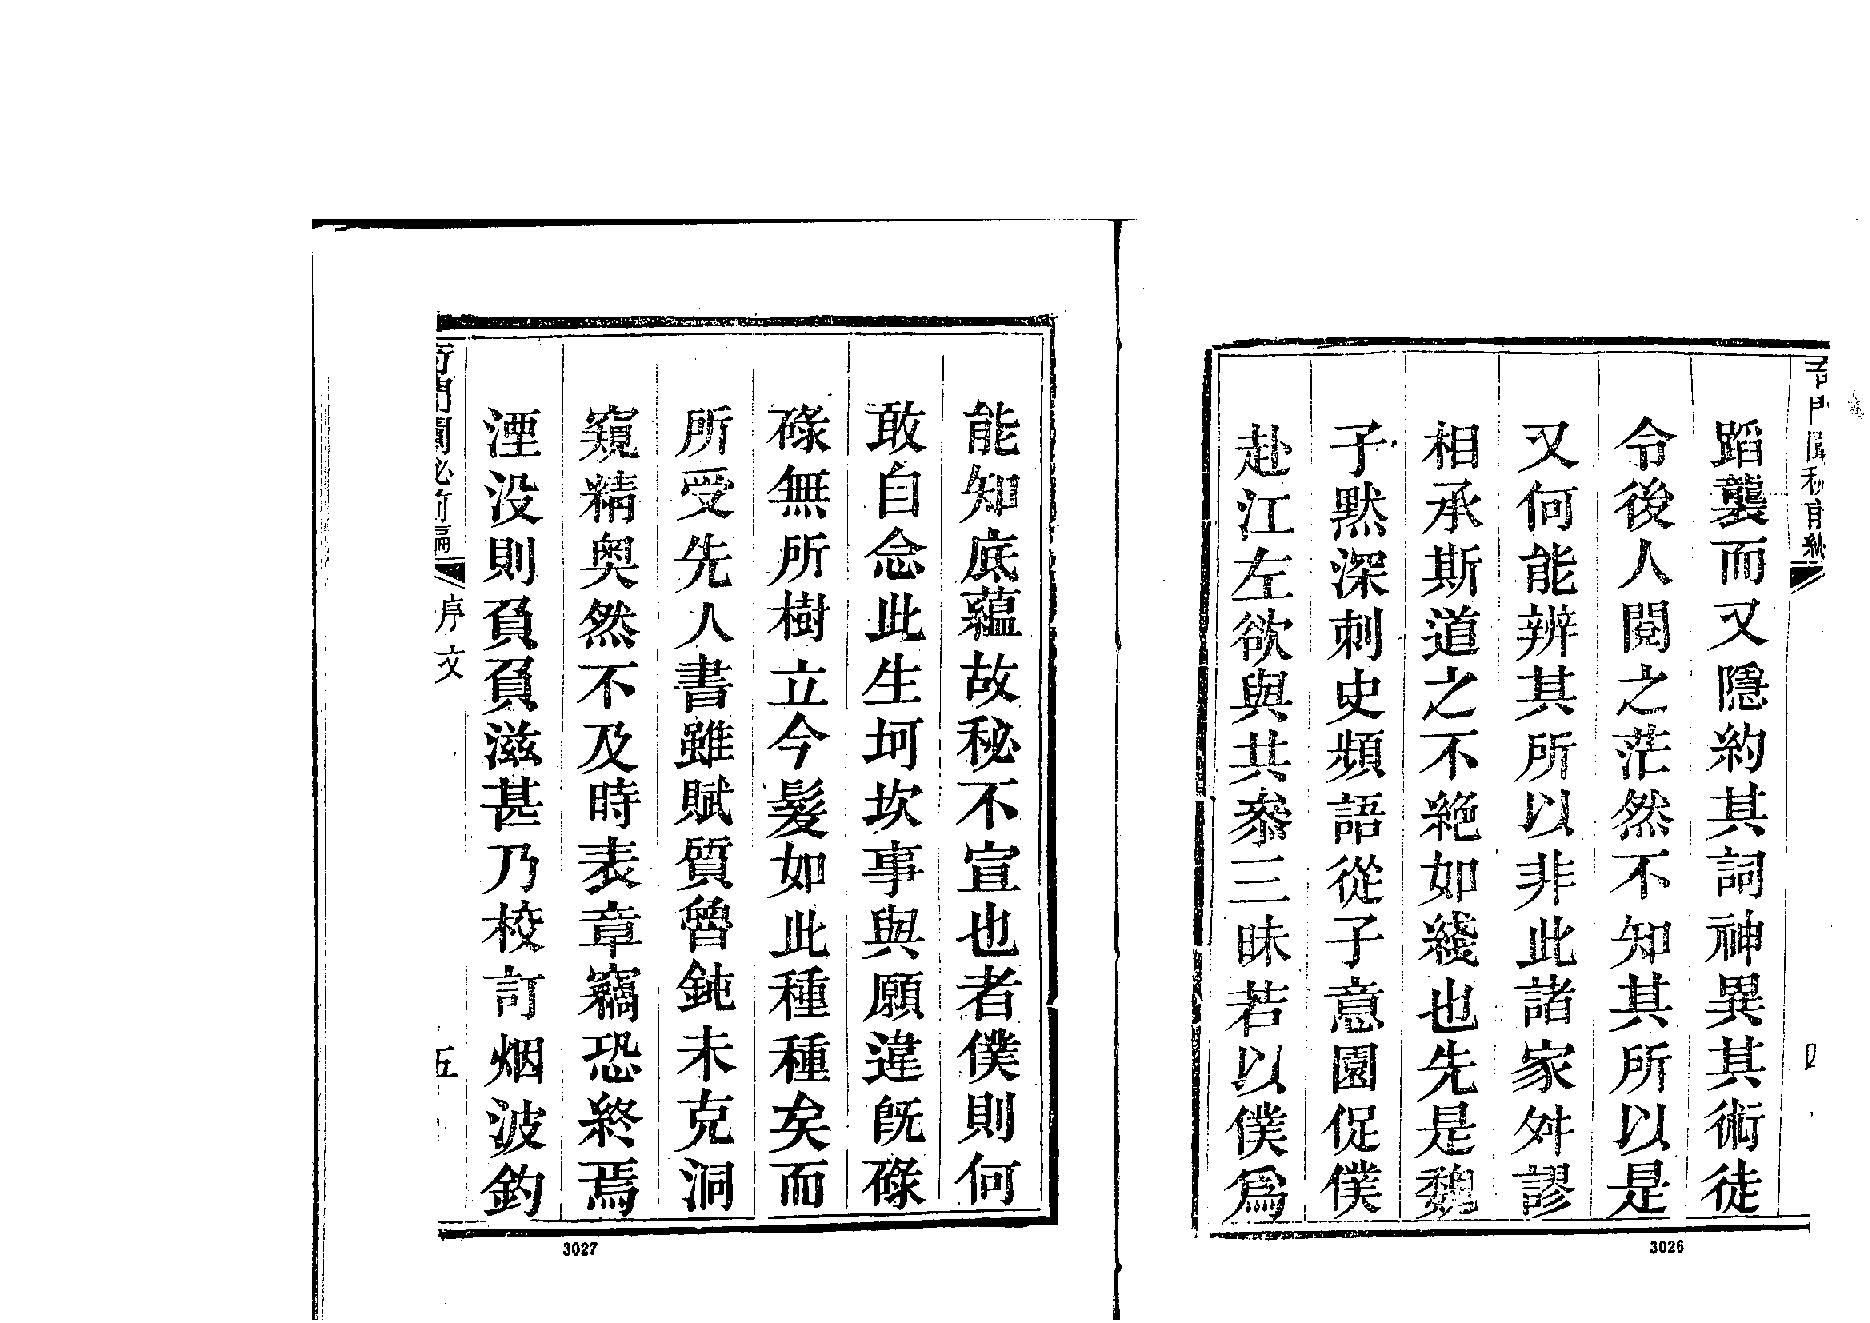 蹈襲而又隱約其詞神異其術徒
令後人閱之茫然不知其所以是
又何能辨其所以非此諸家舛謬
相承斯道之不絶如綫也先是魏
子默深刺史頻語從子意園促僕
赴江左欲與共叅三昧若以僕爲
3026
能知底蘊故秘不宣也者僕則何
敢自念此生坷坎事與願違旣碌
碌無所樹立今髮如此種種矣而
所受先人書雖賦質魯鈍未克洞
窺精奧然不及時表章竊恐終焉
湮没則負負滋甚乃校訂烟波釣
序文
五
3027